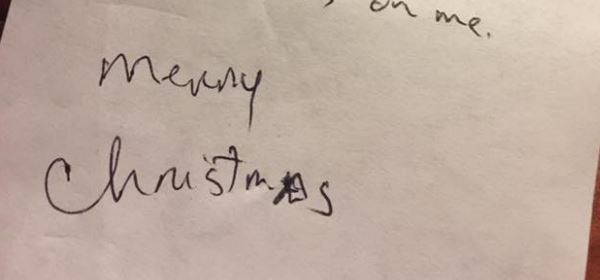 on me.
Merry
Christmas